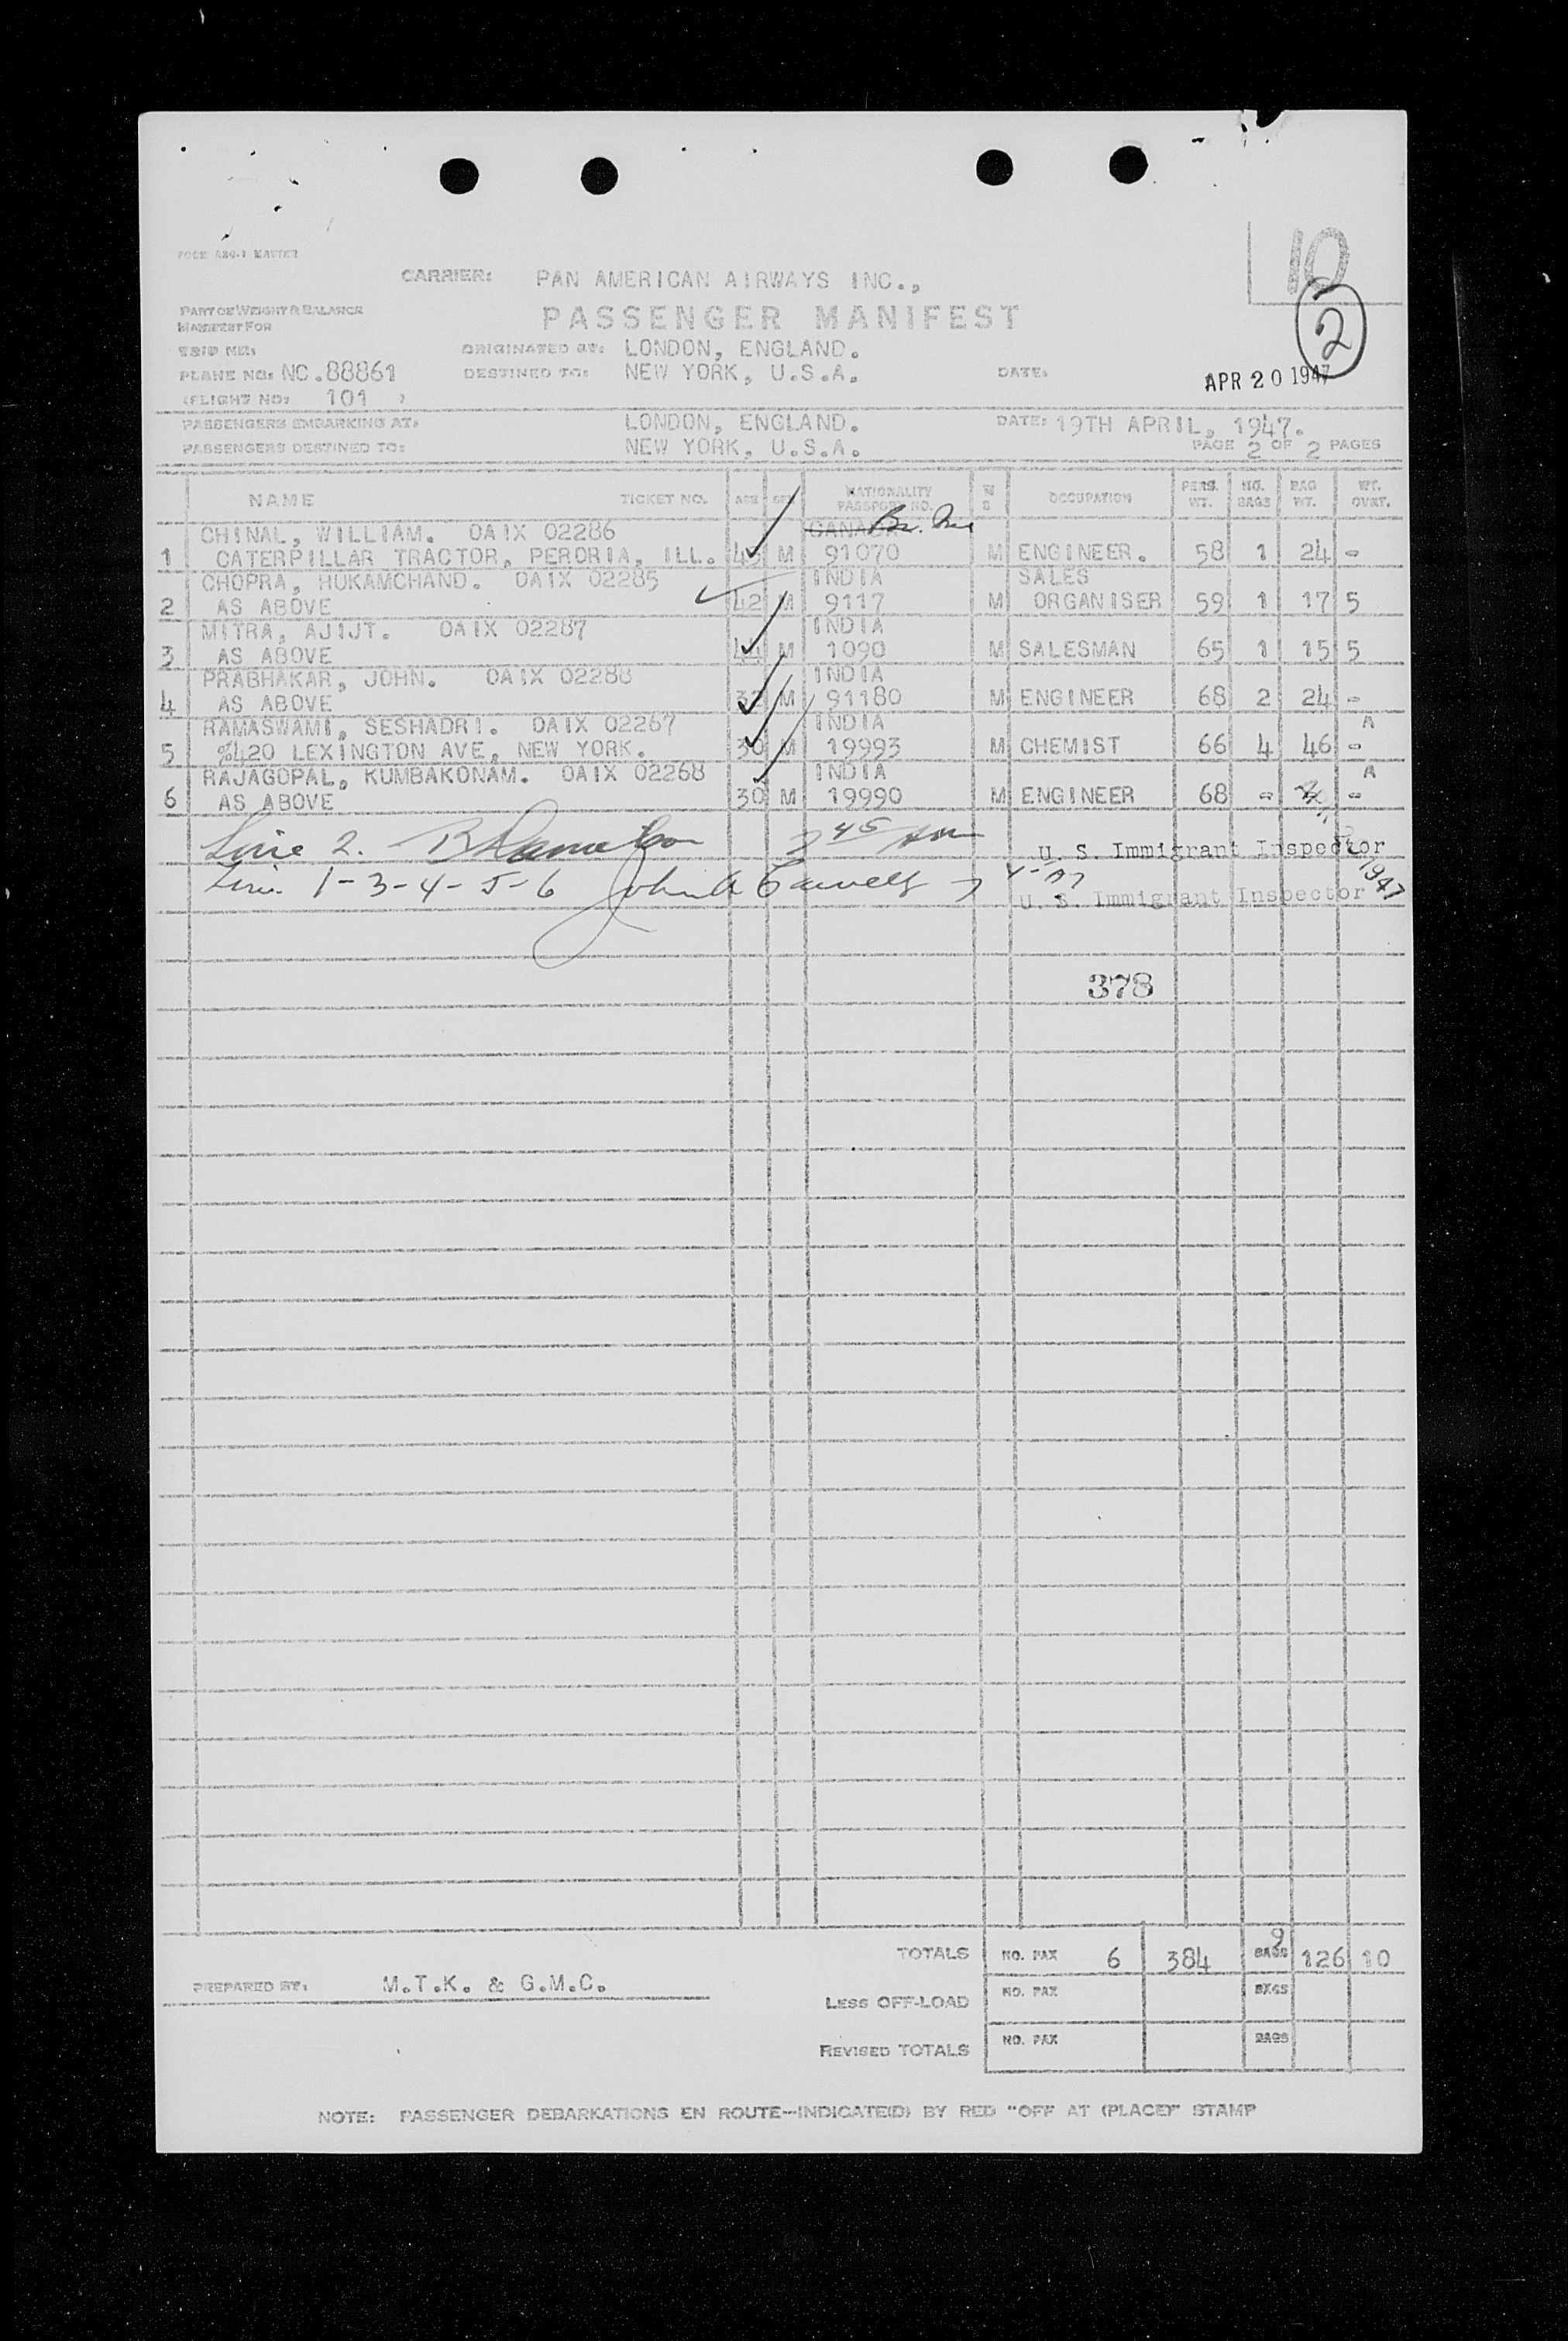 FORM ABO-1 MASTER
10
CARRIER: PAN AMERICAN AIRWAYS INC.,
PART OF WEIGHT & BALANCE
MANIFEST FOR
PASSENGER MANIFEST
2
TRIP NO:
ORIGINATED AT: LONDON, ENGLAND.
PLANE NO: NC.88861
DESTINED TO: NEW YORK, U.S.A.
DATE: APR 20 1947
(FLIGHT NO: 101 )
PASSENGERS EMBARKING AT: LONDON, ENGLAND.
DATE: 19TH APRIL, 1947.
PASSENGERS DESTINED TO: NEW YORK, U.S.A.
PAGE 2 OF 2 PAGES
NAME TICKET NO. AGE SEX NATIONALITY PASSPORT NO. M S OCCUPATION PERS. WT. NO. BAGS BAG WT. WT. OVRT.
CHINAL, WILLIAM. OAIX 02286 CANADA Br.
1 CATERPILLAR TRACTOR, PERORIA, ILL. 45 M 91070 M ENGINEER. 58 1 24 -
CHOPRA, HUKAMCHAND. OAIX 02285 INDIA SALES
2 AS ABOVE 42 M 9117 M ORGANISER 59 1 17 5
MITRA, AJIJT. OAIX 02287 INDIA
3 AS ABOVE 44 M 1090 M SALESMAN 65 1 15 5
PRABHAKAR, JOHN. OAIX 02288 INDIA
4 AS ABOVE 32 M 91180 M ENGINEER 68 2 24 -
RAMASWAMI, SESHADRI. OAIX 02267 INDIA A
5 %420 LEXINGTON AVE, NEW YORK. 30 M 19993 M CHEMIST 66 4 46 -
RAJAGOPAL, KUMBAKONAM. OAIX 02268 INDIA A
6 AS ABOVE 30 M 19990 M ENGINEER 68 - -
Line 2. 2 45 AM
U. S. Immigrant Inspector
Line 1-3-4-5-6 John
U. S. Immigrant Inspector
1947
378
TOTALS NO. PAX 6 384 9 BAGS 126 10
PREPARED BY: M.T.K. & G.M.C.
LESS OFF-LOAD NO. PAX BAGS
REVISED TOTALS NO. PAX BAGS
NOTE: PASSENGER DEBARKATIONS EN ROUTE—INDICATE(D) BY RED "OFF AT (PLACE)" STAMP